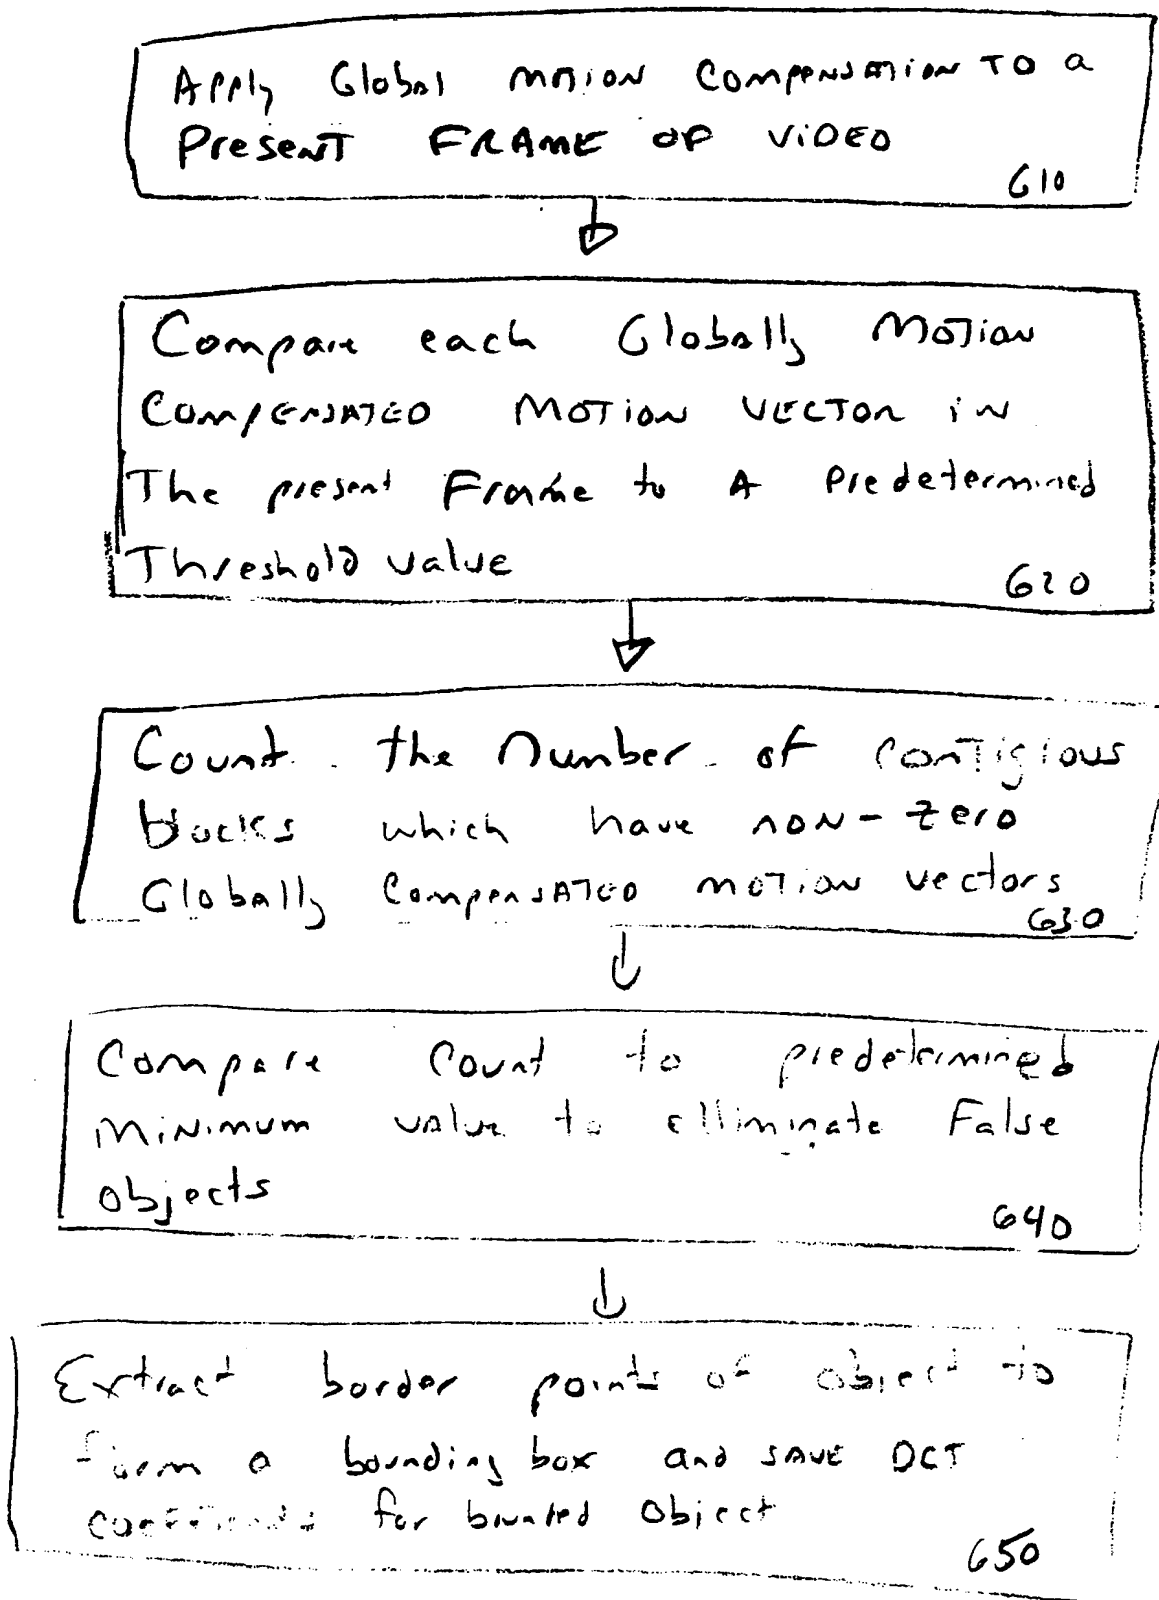 Apply Global MOTION COMPENSATION TO a
PresenT FRAME OF ViDEO
610
Compare each Globally MOTION
COMPENSATED MOTION VECTOR iN
The present Frame to A Predetermined
Threshold value
620
Count the Number of contigious
blocks which have NON-zero
Globally COMPENSATED MOTION vectors
630
Compare Count to predetermined
MiNimum value to elliminate False
objects
640
Extract border points of object to
form a bounding box and SAVE DCT
coefficients for bounded Object
650